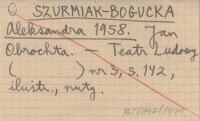 SZURMIAK-BOGUCKA
Aleksandra 1958. Jan
Obrochta. — Teatr Ludowy
( ) nr 3, s. 142,
ilustr., nuty.